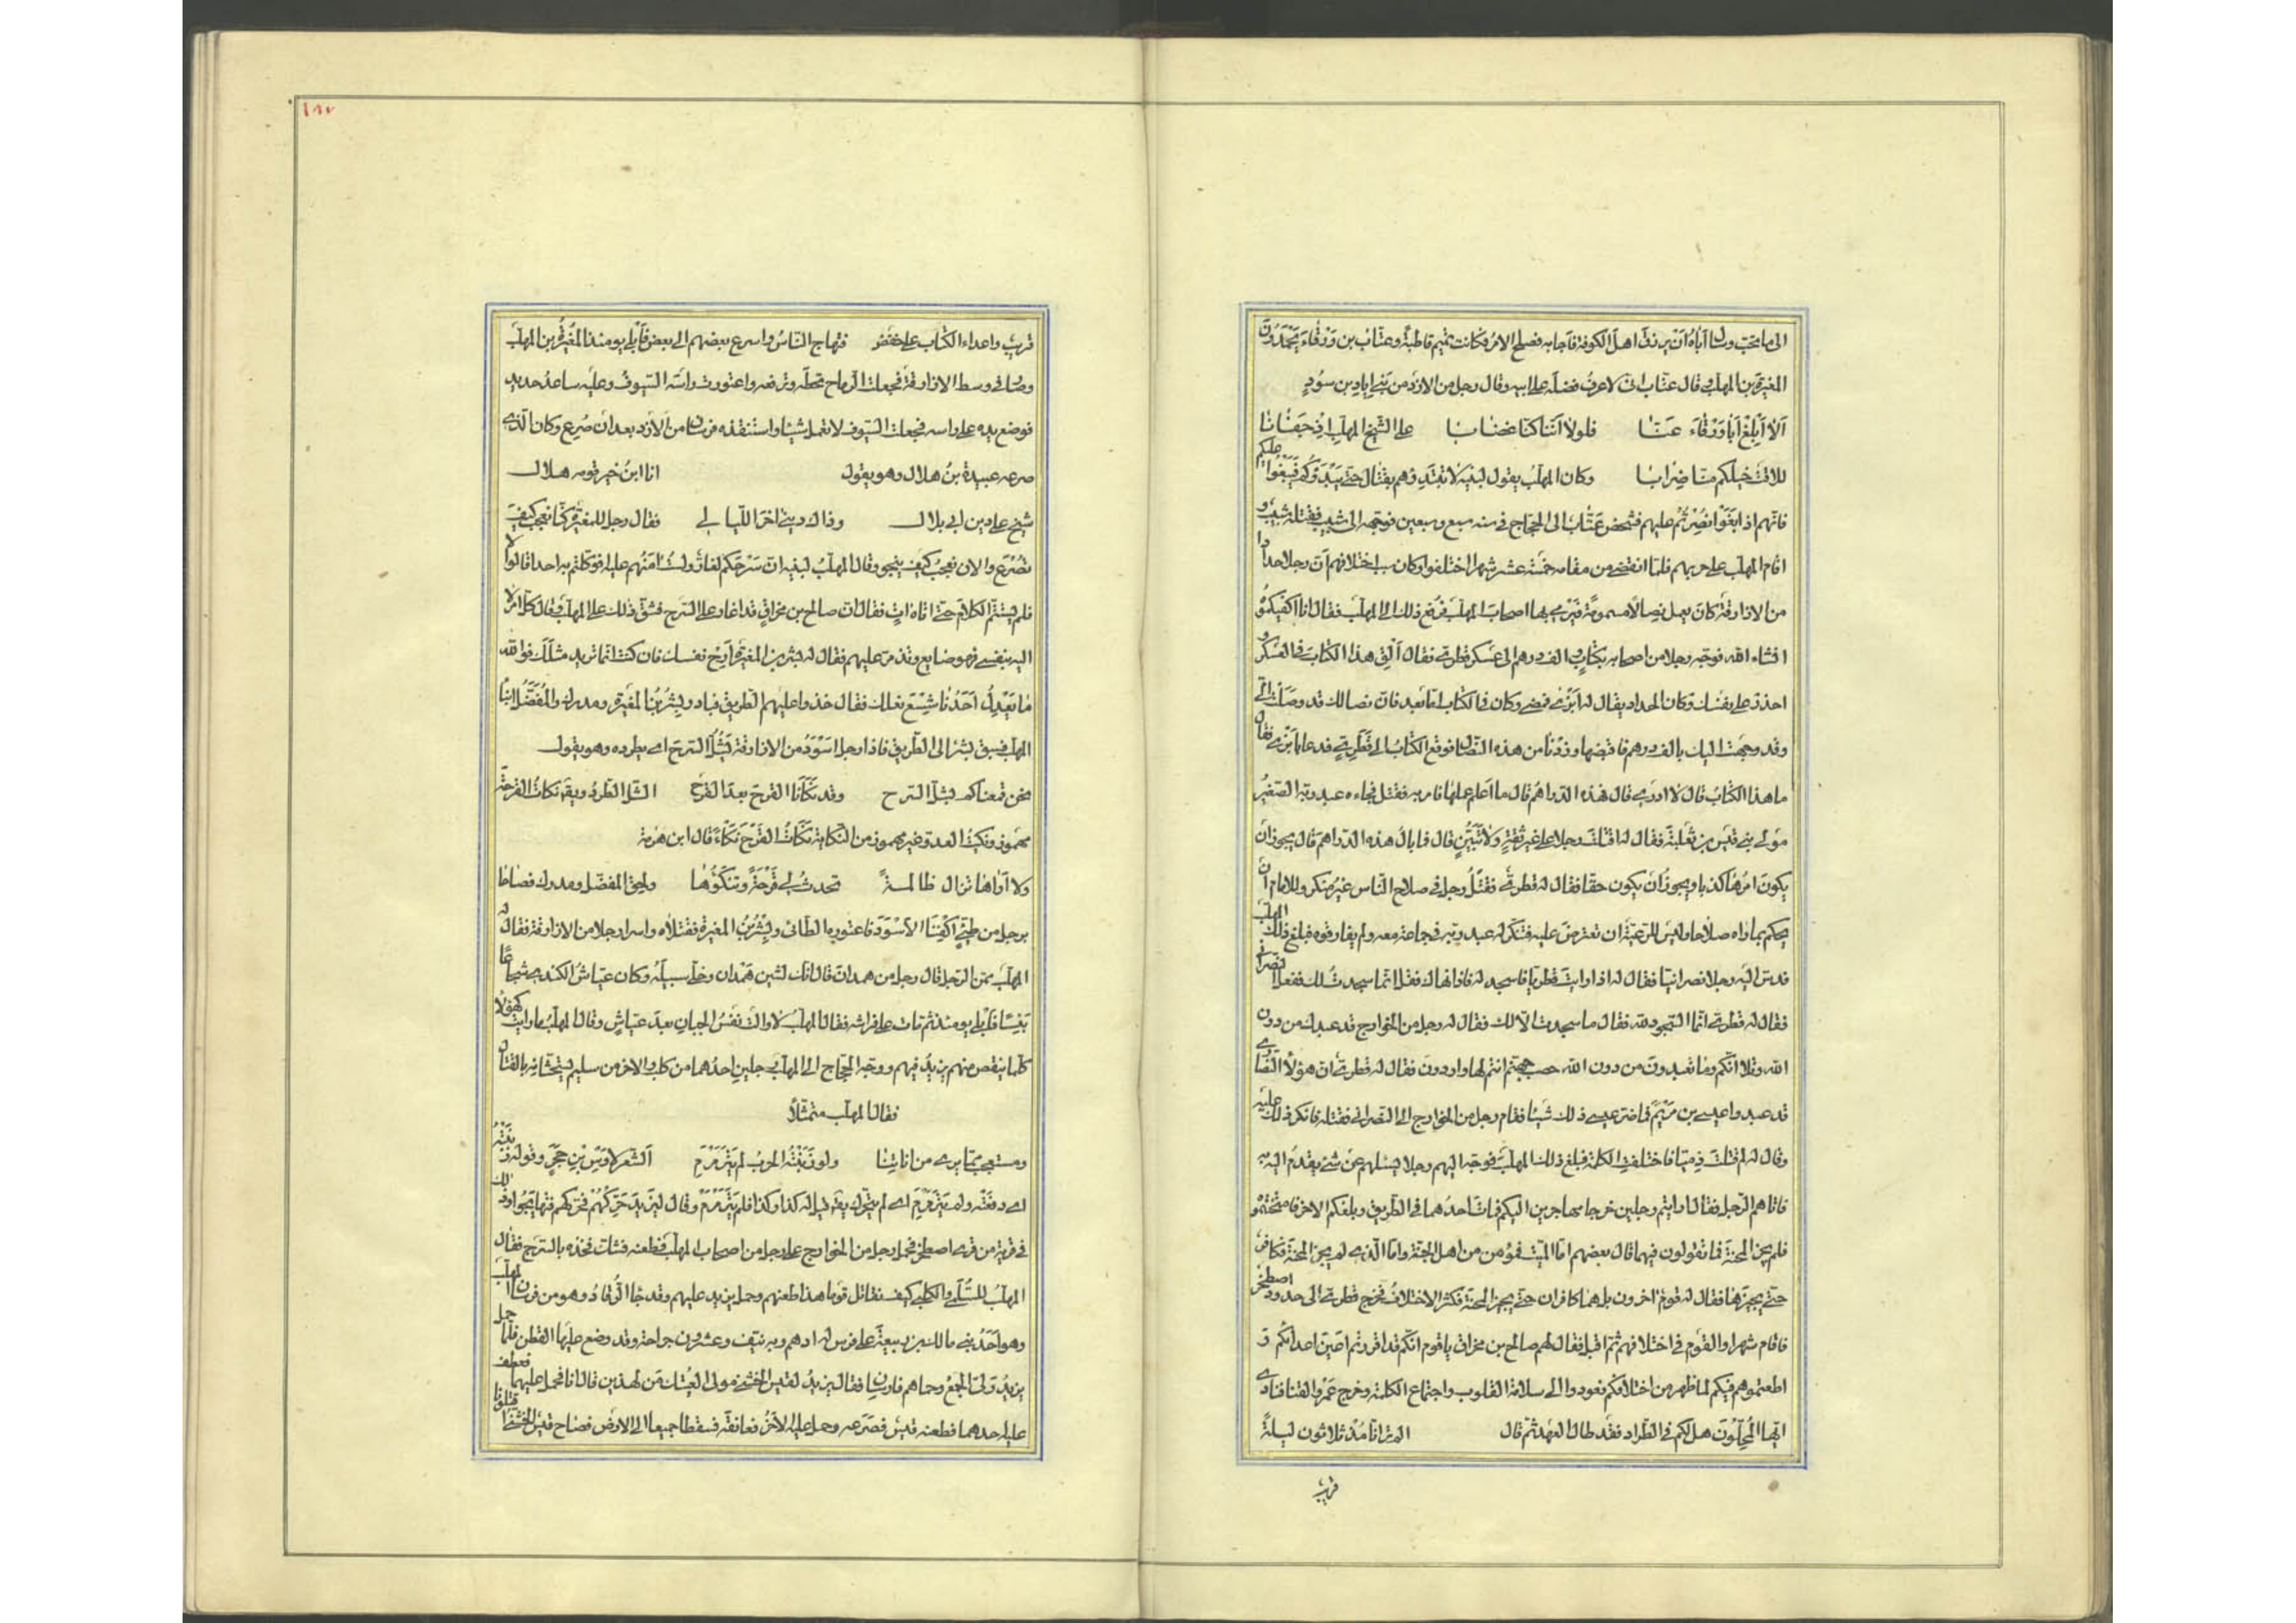 الى ما يحب وسال اباه ان يرزق اهل الكوفة فاجابه فصلح الامر فكانت تميم قاطبة وعتاب بن ورقاء يحمدون
المغيرة بن المهلب وقال عتاب انى لاعرف فضله على ابيه وقال رجل من الازد من بنى اياد بن سود
الا ابلغ ابا ورقاء عنا فلولا اننا كنا غضابا على الشيخ المهلب اذ جفانا
للاقت خيلكم منا ضرابا وكان المهلب يقول لبنيه لا تبدؤهم بقتال حتى يبدؤكم فيبغوا عليكم
فانهم اذا بغوا نصرتم عليهم فشخص عتاب الى الحجاج فى سنه سبع وسبعين فوجهه الى شبيب فقتله شبيب و
اقام المهلب على حربهم فلما انقضى من مقامه ثمنية عشر شهرا اختلفوا وكان سبب اختلافهم ان رجلا حدادا
من الازارقة كان يعمل نصالا مسمومة فيرمى بها اصحاب المهلب فرفع ذلك الى المهلب فقال انا اكفيكموه
انشاء الله فوجه رجلا من اصحابه بكتاب والف درهم الى عسكر قطرى فقال الق هذا الكتاب فى العسكر و
احذر على نفسك وكان الحداد يقال له ابزى فمضى وكان فى الكتاب اما بعد فان نصالك قد وصلت الى
وقد وجهت اليك بالف درهم فاقبضها وزدنا من هذه النصال فوقع الكتاب الى قطرى فدعا بابزى فقال
ما هذا الكتاب قال لا ادرى قال فهذه الدراهم قال ما اعلم علمها فامر به فقتل فجاءه عبد ربه الصغير
مولى بنى قيس بن ثعلبة فقال له اقتلت رجلا على غير ثقة ولا تبين قال فما بال هذه الدراهم قال يجوز ان
يكون امرها كذبا ويجوز ان يكون حقا فقال له قطرى فقتل رجل فى صلاح الناس غير منكر وللامام ان
يحكم بما راه صلاحا وليس للرعية ان تعترض عليه فتنكر له عبد ربه فى جماعة معه ولم يفارقوه فبلغ ذلك المهلب
فدس اليه رجلا نصرانيا فقال له اذا رايت قطريا فاسجد له فاذا نهاك فقل انما سجدت لك ففعل النصرانى
فقال له قطرى انما السجود لله فقال ما سجدت الا لك فقال له رجل من الخوارج قد عبدك من دون
الله وتلا انكم وما تعبدون من دون الله حصب جهنم انتم لها واردون فقال له قطرى ان هؤلا النصارى
قد عبدوا عيسى بن مريم فما ضر عيسى ذلك شيئا فقام رجل من الخوارج الى النصرانى فقتله فانكر ذلك عليه
وقال له اقتلت ذميا فاختلفت الكلمة فبلغ ذلك المهلب فوجه اليهم رجلا يسئلهم عن شئ يقدم اليه به
فاتاهم الرجل فقال ارايتم رجلين خرجا مهاجرين اليكم فمات احدهما فى الطريق وبلغكم الاخر فامتحنتموه
فلم يجز المحنة فما تقولون فيهما قال بعضهم اما الميت فمؤمن من اهل الجنة واما الذى لم يجز المحنة فكافر
حتى يجيزها فقال له قوم اخرون بل هما كافران حتى يجيزا المحنة فكثر الاختلاف فخرج قطرى الى حدود اصطخر
فاقام شهرا والقوم فى اختلافهم ثم اقبل فقال لهم صالح بن مخراق يا قوم انكم قد اقررتم اعين اعدائكم و
اطعتموهم فيكم لما ظهر من اختلافكم فعودوا الى سلامة القلوب واجتماع الكلمة وخرج عمرو القنا فنادى
ايها المحلون هل لكم فى الطراد فقد طال العهد ثم قال الم تر انا مذ ثلاثون ليلة
قريب
١٨٧
قريب واعداء الكتاب على خفض فتهاج الناس واسرع بعضهم الى بعض فابلى يومئذ المغيرة بن المهلب
وصار فى وسط الازارقة فجعلت الرماح تحطه وترفعه واعتورت راسه السيوف وعليه ساعد حديد
فوضع يده على راسه فجعلت السيوف لا تعمل شيئا واستنقذه فرسان من الازد بعد ان صرع وكان الذى
صرعه عبيدة بن هلال وهو يقول انا ابن خير قومه هلال
شيخ على دين ابى بلال وذاك دينى اخر الليالى فقال رجل للمغيرة كنا نعجب كيف
تصرع والان نعجب كيف ينجو وقال المهلب لبنيه ان سرحكم لغار ولست امنهم عليه افوكلتم به احدا قالوا لا
فلم يستتم الكلام حتى اتاه ات فقال ان صالح بن مخراق قد اغار على السرح فشق ذلك على المهلب وقال كل امر لا
اليه بنفسى فهو ضايع وتذمر عليهم فقال له بشر بن المغيرة ارح نفسك فان كنت انما تريد مثلك فوالله
ما يعدل احدنا شسع نعلك فقال خذوا عليهم الطريق فبادر بشر بن المغيرة ومدرك والمفضل ابنا
المهلب فسبق بشر الى الطريق فاذا رجل اسود من الازارقة يشل السرح اى يطرده وهو يقول
نحن قمعناكم بشل السرح وقد نكانا القرح بعد القرح الشل الطرد ويقال نكات القرحة
مهموز ونكيت العدو غير مهموز من النكاية نكات القرح نكاء قال ابن هرمة
ولا اراها تزال ظالمة تحدث لى قرحة وتنكؤها ولحق المفضل ومدرك فصاحا
برجل من طئ اكفنا الاسود فاعتوره الطائى وبشر بن المغيرة فقتلاه واسرا رجلا من الازارقة فقال له
المهلب ممن الرجل قال رجل من همدان قال انك لشين همدان وخلى سبيله وكان عياش الكندى شجاعا
بئيسا فابلى يومئذ ثم مات على فراشه فقال المهلب لا والت نفس الجبان بعد عياش وقال المهلب ما رايت كهؤلاء
كلما ينقص منهم يزيد فيهم ووجه الحجاج الى المهلب رجلين احدهما من كلب والاخر من سليم يستحثانه بالقتال
فقال المهلب متمثلا
ومستعجب مما يرى من اناتنا ولو زبنته الحرب لم يترمرم الشعر لاوس بن حجر وقوله زبنته
اى دفعته ولم يترمرم اى لم يتحرك يقال قيل له كذا وكذا فلم يترمرم وقال ليزيد حركهم فحركهم فتهايجوا وذلك
فى قرية من قرى اصطخر فحمل رجل من الخوارج على رجل من اصحاب المهلب فطعنه فشك فخذه بالسرج فقال
المهلب للسلمى والكلبى كيف نقاتل قوما هذا طعنهم وحمل يزيد عليهم وقد جا الرقاد وهو من فرسان المهلب
وهو احد بنى مالك بن ربيعة على فرس له ادهم وبه نيف وعشرون جراحة وقد وضع عليها القطن فلما حمل
يزيد ولى الجمع وحماهم فارسان فقال يزيد لقيس الخشنى مولى العتيك من لهذين قال انا فحمل عليهما فعطف
عليه احدهما فطعنه قيس فصرعه وحمل عليه الاخر فعانقه فسقطا جميعا الى الارض فصاح قيس الخشنى اقتلونا